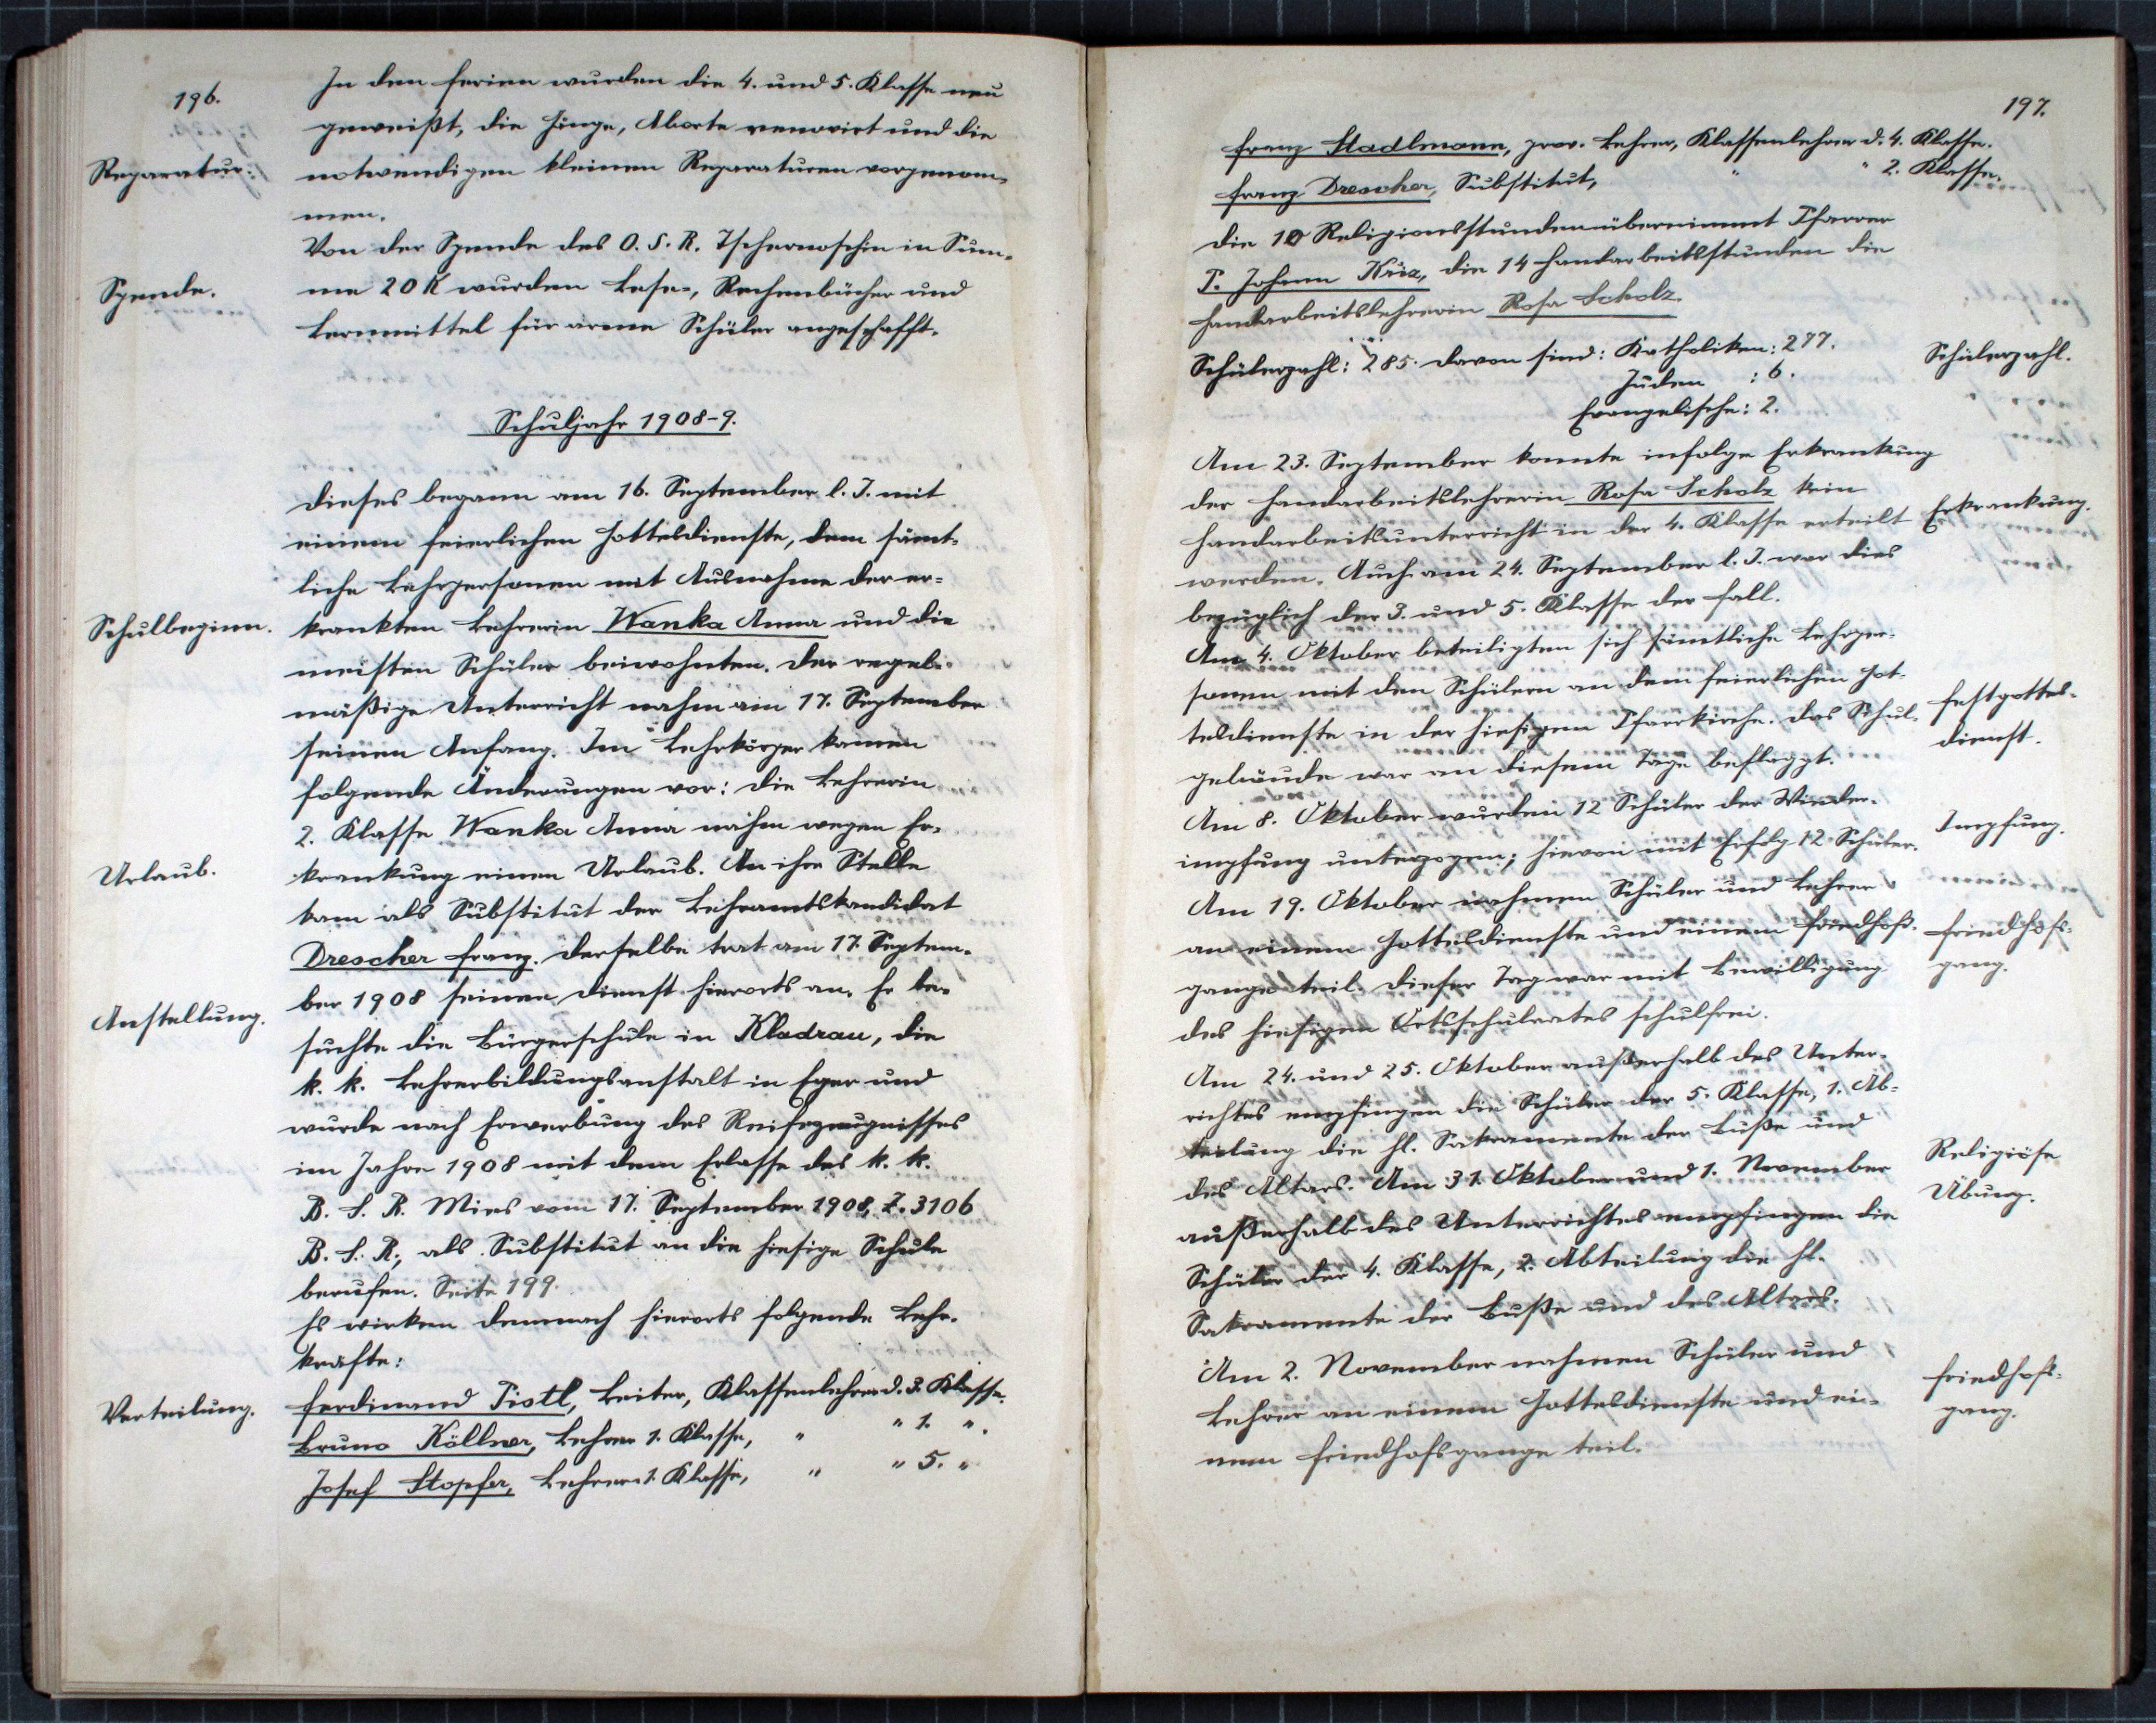 196.
In den Ferien wurden die 4. und 5. Klasse neu
geweißt, die Gänge, Aborte renovirt und die
Reparatur:
notwendigen kleinen Reparaturen vorgenom=
men.
Von der Spende des O. S. R. Tschernoschin in Sum=
Spende.
me 20 K wurden Lese-, Rechenbücher und
Lernmittel für arme Schüler angeschafft.
Schuljahr 1908-9.
Dieses begann am 16. September l. J. mit
einem feierlichen Gottesdienste, dem sämt=
liche Lehrpersonen mit Ausnahme der er=
Schulbeginn.
krankten Lehrerin Wanka Anna und die
meisten Schüler beiwohnten. Der regel=
mäßige Unterricht nahm am 17. September
seinen Anfang. Im Lehrkörper kamen
folgende Änderungen vor: Die Lehrerin
2. Klasse Wanka Anna nahm wegen Er=
Urlaub.
krankung einen Urlaub. An ihre Stelle
kam als Substitut der Lehramtskandidat
Drescher Franz. Derselbe trat am 17. Septem=
Anstellung.
ber 1908 seinen Dienst hierorts an. Er be=
suchte die Bürgerschule in Kladrau, die
k. k. Lehrerbildungsanstalt in Eger und
wurde nach Erwerbung des Reifezeugnisses
im Jahre 1908 mit dem Erlasse des k. k.
B. S. R. Mies vom 17. September 1908, Z. 3106
B. S. R., als Substitut an die hiesige Schule
berufen. Seite 199.
Es wirken demnach hierorts folgende Lehr=
kräfte:
Verteilung.
Ferdinand Pistl, Leiter, Klassenlehrer d. 3. Klasse.
Bruno Köllner, Lehrer 1. Klasse, " " 1. ".
Josef Stopfer, Lehrer 1. Klasse, " " 5. "
197.
Franz Stadlmann, prov. Lehrer, Klassenlehrer d. 4. Klasse.
Franz Drescher, Substitut, " " 2. Klasse.
Die 10 Religionsstunden übernimmt Pfarrer
P. Johann Kria, die 14 Handarbeitsstunden die
Handarbeitslehrerin Rosa Scholz.
Schülerzahl: 285. Davon sind: Katholiken: 277.
Schülerzahl.
Juden : 6.
Evangelische: 2.
Am 23. September konnte infolge Erkrankung
der Handarbeitslehrerin Rosa Scholz kein
Erkrankung.
Handarbeitsunterricht in der 4. Klasse erteilt
werden. Auch am 24. September l. J. war dies
bezüglich der 3. und 5. Klasse der Fall.
Am 4. Oktober beteiligten sich sämtliche Lehrper=
sonen mit den Schülern an dem feierlichen Got=
Festgottes=
tesdienste in der hiesigen Pfarrkirche. Das Schul=
dienst.
gebäude war an diesem Tage beflaggt.
Am 8. Oktober wurden 12 Schüler der Wieder=
Impfung.
impfung unterzogen; hievon mit Erfolg 12 Schüler.
Am 19. Oktober nahmen Schüler und Lehrer
an einem Gottesdienste und einem Friedhofs=
Friedhofs=
gange teil. Dieser Tag war mit Bewilligung
gang.
des hiesigen Ortsschulrates schulfrei.
Am 24. und 25. Oktober außerhalb des Unter=
richtes empfingen die Schüler der 5. Klasse, 1. Ab=
teilung die hl. Sakramente der Buße und
Religiöse
des Altars. Am 31. Oktober und 1. November
Übung.
außerhalb des Unterrichtes empfingen die
Schüler der 4. Klasse, 2. Abteilung die hl.
Sakramente der Buße und des Altars.
Am 2. November nahmen Schüler und
Friedhofs=
Lehrer an einem Gottesdienste und ei=
gang.
nem Friedhofsgange teil.